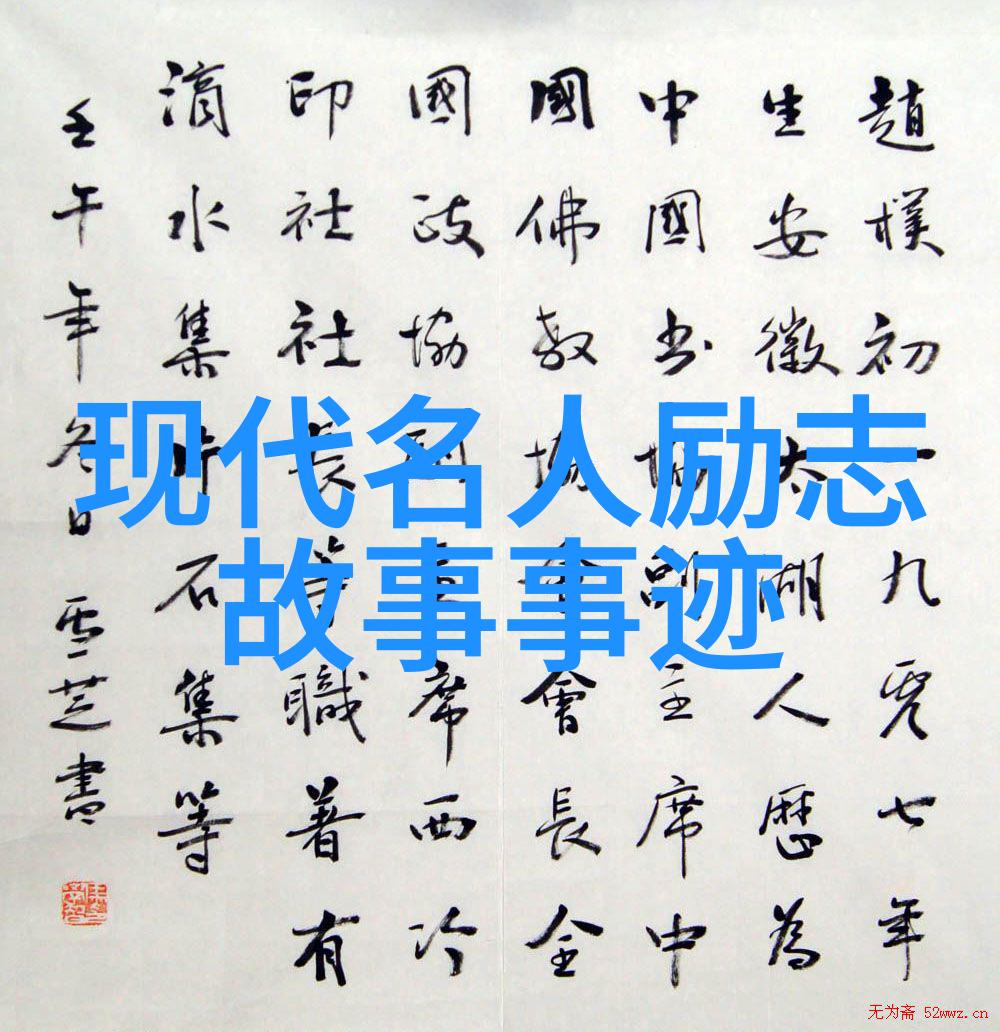 现代名人励志
故事事迹
趙樸初一九零七年
生安徽太湖人歷為
中國书協副主席中
國佛教協會會長全
國政協副主席西冷
印社社長等職著有
滴水集片石集等
壬午年冬日雪芝書
无为斋 52wwz.cn